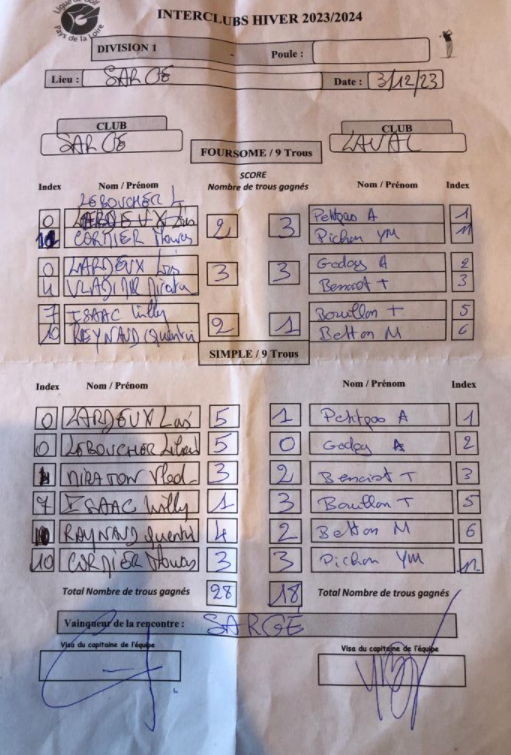 Ligue de Golf
Pays de la Loire
INTERCLUBS HIVER 2023/2024
DIVISION 1 - Poule :
Lieu : SARGE Date : 3/12/23
CLUB CLUB
SARGE LAVAL
FOURSOME / 9 Trous
SCORE
Index Nom / Prénom Nombre de trous gagnés Nom / Prénom Index
LEBOUCHER L
0 2 3 Petitgas A 1
CORMIER Pichon YM 11
0 LARDEUX Loïs 3 3 Godoy A 2
4 VLADIMIR Benoist T 3
7 ISAAC Willy 2 1 Bouillon T 5
10 REYNAUD Quentin Betton M 6
SIMPLE / 9 Trous
Index Nom / Prénom Nom / Prénom Index
0 LARDEUX Loïs 5 1 Petitgas A 1
0 LEBOUCHER 5 0 Godoy A 2
NIRATON Vlad 3 2 Benoist T 3
7 ISAAC Willy 1 3 Bouillon T 5
10 RAYNAUD Quentin 4 2 Betton M 6
10 CORMIER 3 3 Pichon YM 11
Total Nombre de trous gagnés 28 18 Total Nombre de trous gagnés
Vainqueur de la rencontre : SARGÉ
Visa du capitaine de l'équipe Visa du capitaine de l'équipe